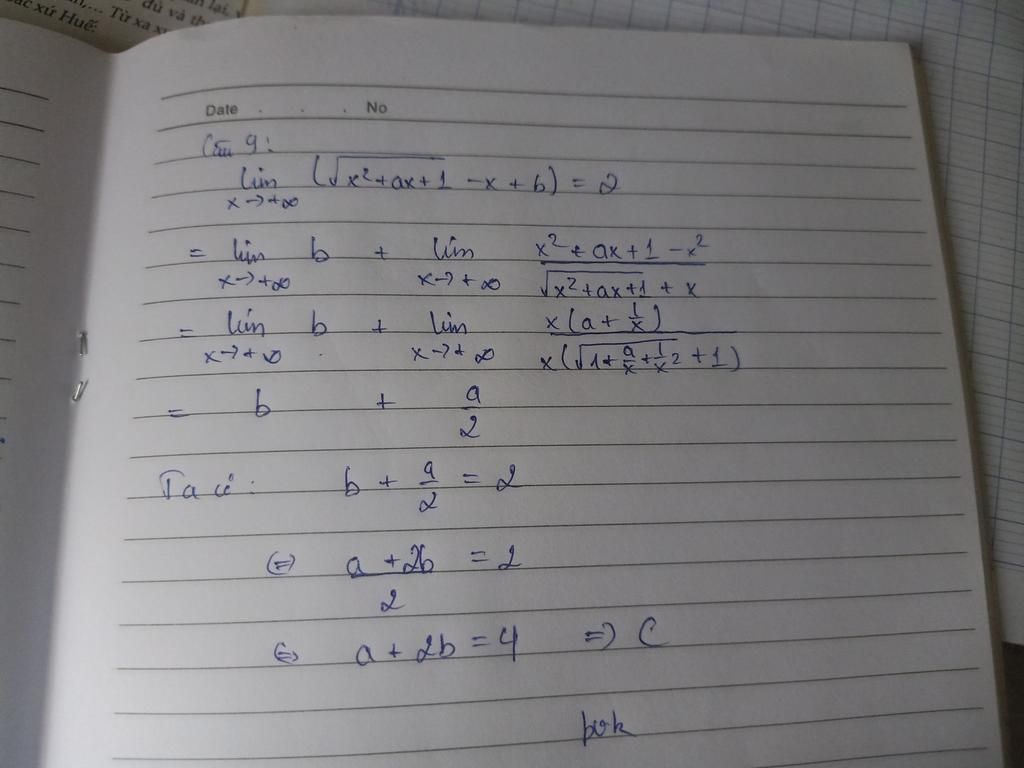 ần lại,
đủ và th
Từ xa x
các xứ Huế.
Date . . . No
Câu 9:
lim x→+∞ (√(x²+ax+1) - x + b) = 2
= lim x→+∞ b + lim x→+∞ (x² + ax + 1 - x²)/(√(x²+ax+1) + x)
= lim x→+∞ b + lim x→+∞ x(a + 1/x)/x(√(1+a/x+1/x²) + 1)
= b + a/2
Ta có: b + a/2 = 2
⇔ (a + 2b)/2 = 2
⇔ a + 2b = 4 ⇒ C